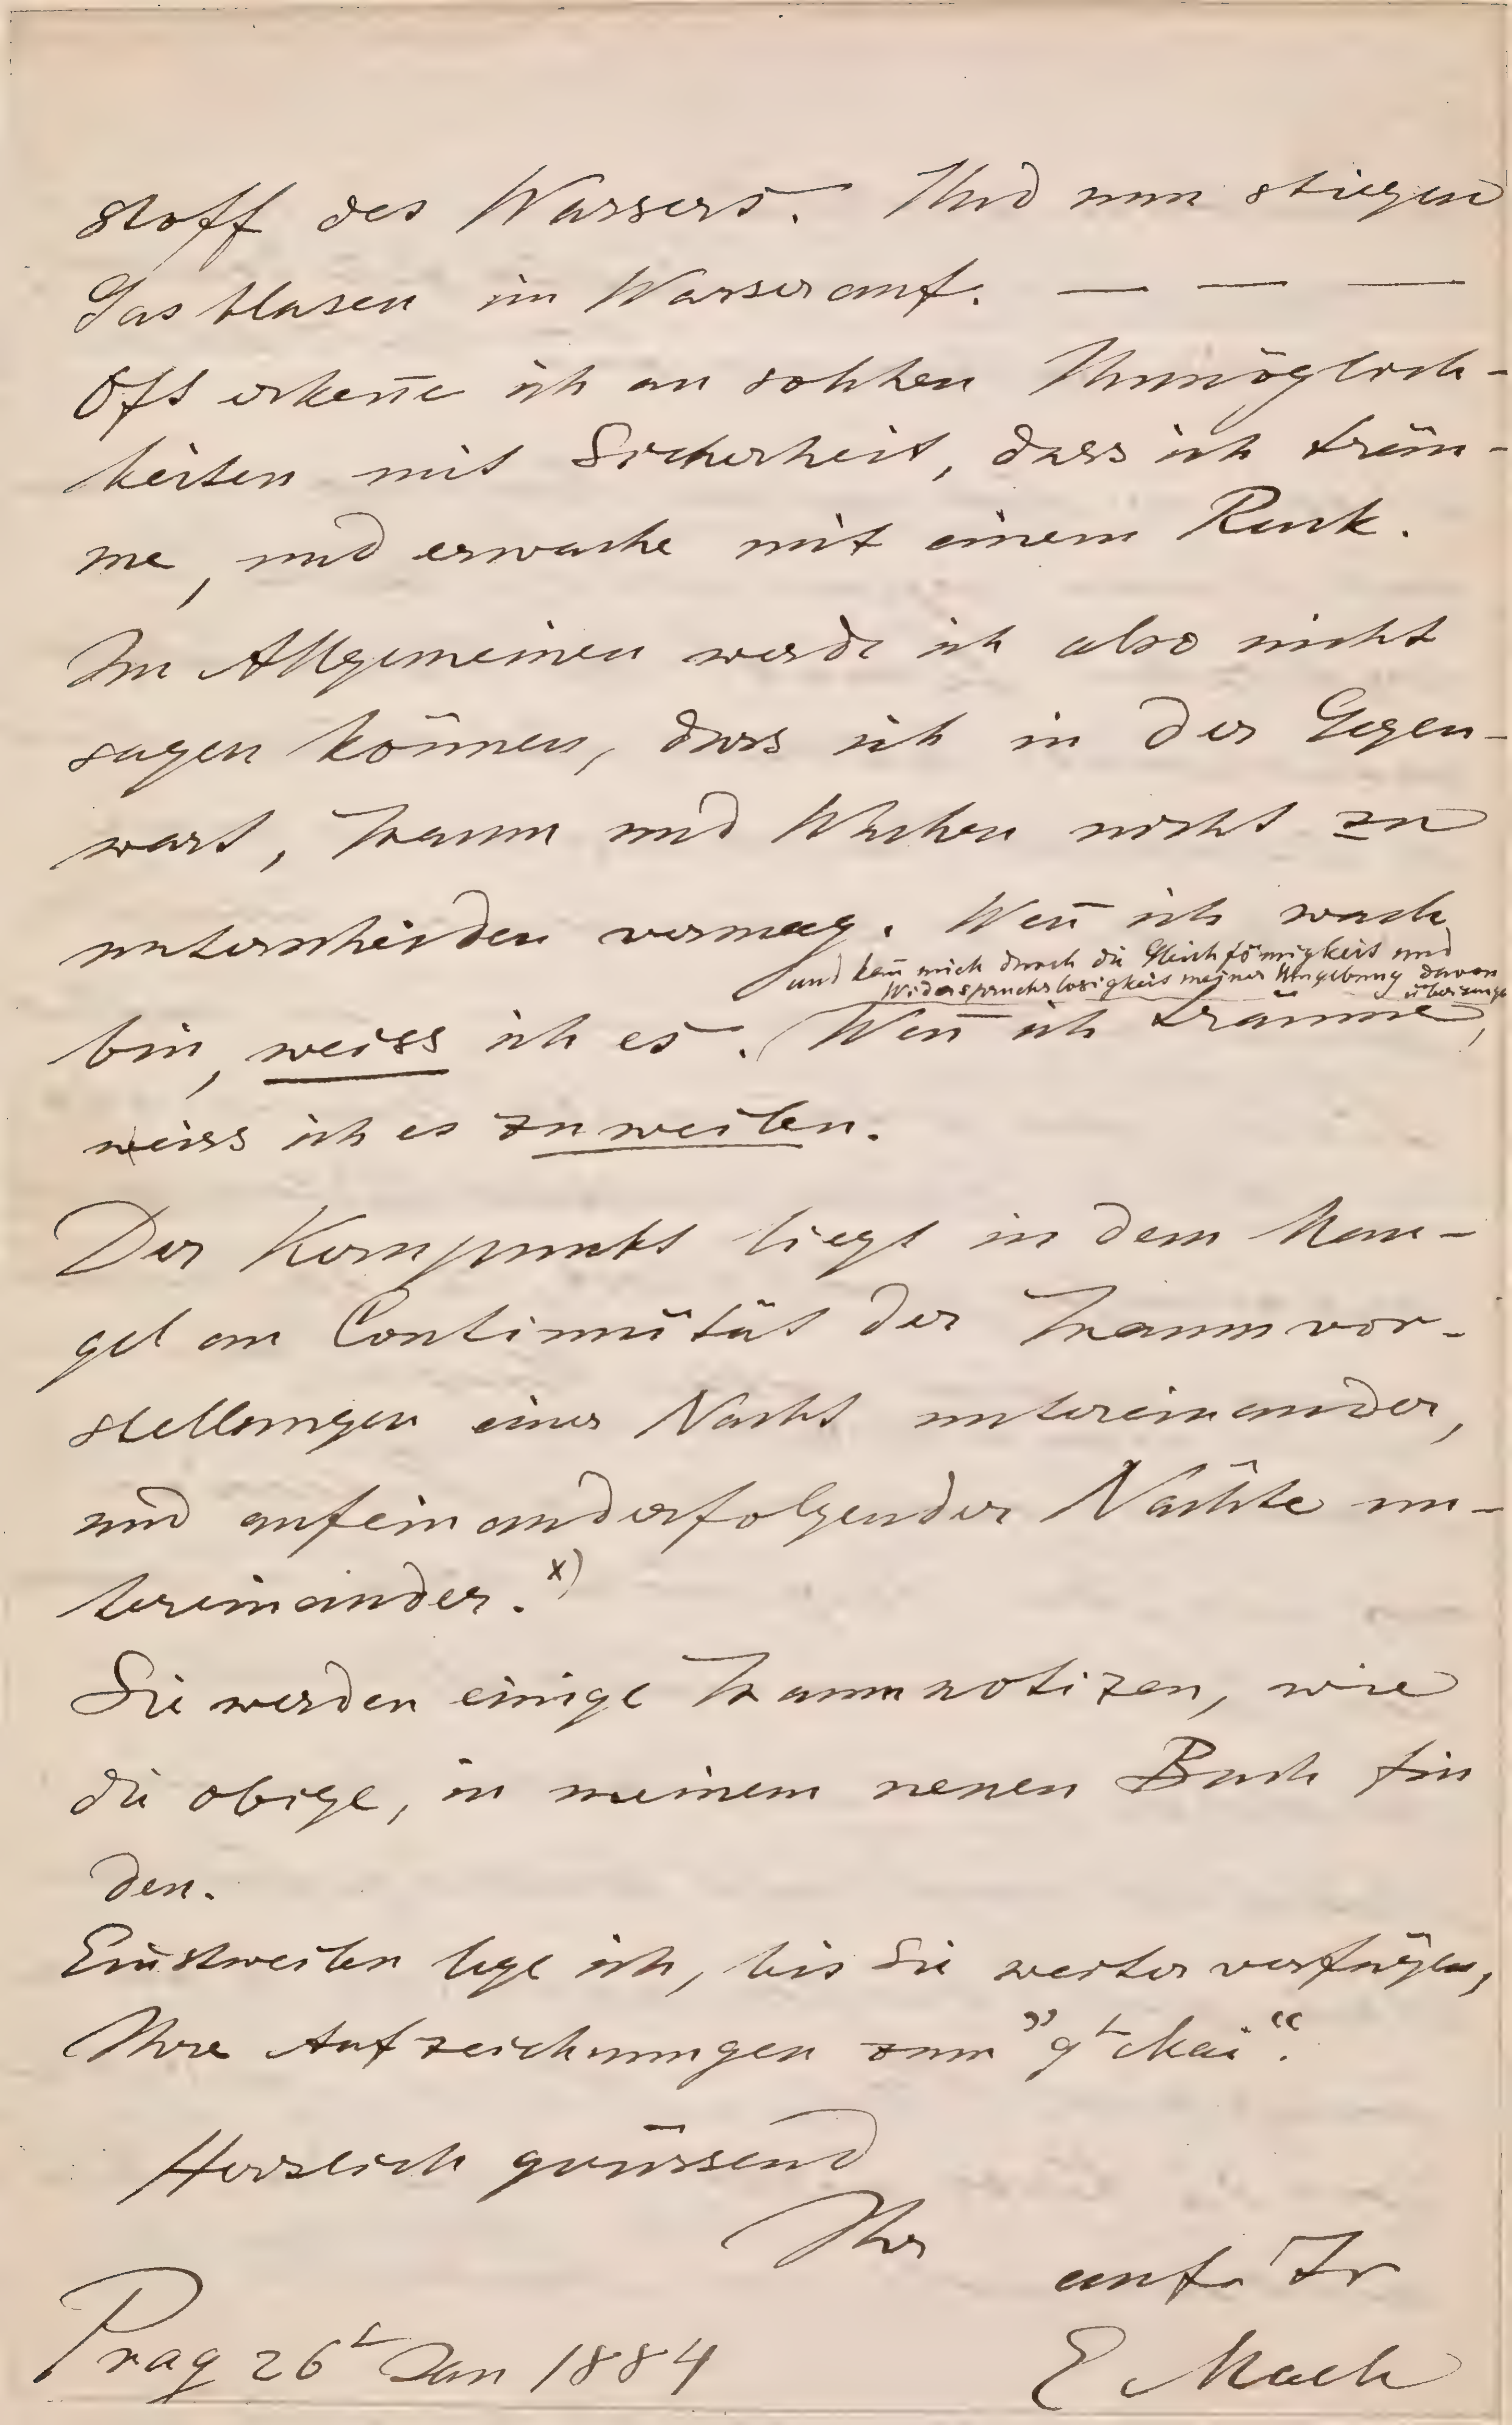 stoff des Wassers. Und nun stiegen
Gasblasen im Wasser auf. — — —
Oft erkeñe ich an solchen Unmöglich-
keiten mit Sicherheit, dass ich träu-
me, und erwache mit einem Ruck.
Im Allgemeinen werde ich also nicht
sagen können, dass ich in der Gegen-
wart, Traum und Wachen nicht zu
unterscheiden vermag. Weñ ich wach
und kañ mich durch die Gleichförmigkeit und
Widerspruchslosigkeit meiner Umgebung davon
überzeugen
bin, weiss ich es. Weñ ich träume,
weiss ich es zuweilen.
Der Kernpunkt liegt in dem Man-
gel an Continuität der Traumvor-
stellungen einer Nacht untereinander,
und aufeinanderfolgender Nächte un-
tereinander. x)
Sie werden einige Traumnotizen, wie
die obige, in meinem neuen Buch fin
den.
Einstweilen lege ich, bis Sie weiter verfügen,
Ihre Aufzeichnungen zum "9t Mai".
Herzlich grüssend
Ihr
aufr
E Mach
Prag 26t Jan 1884